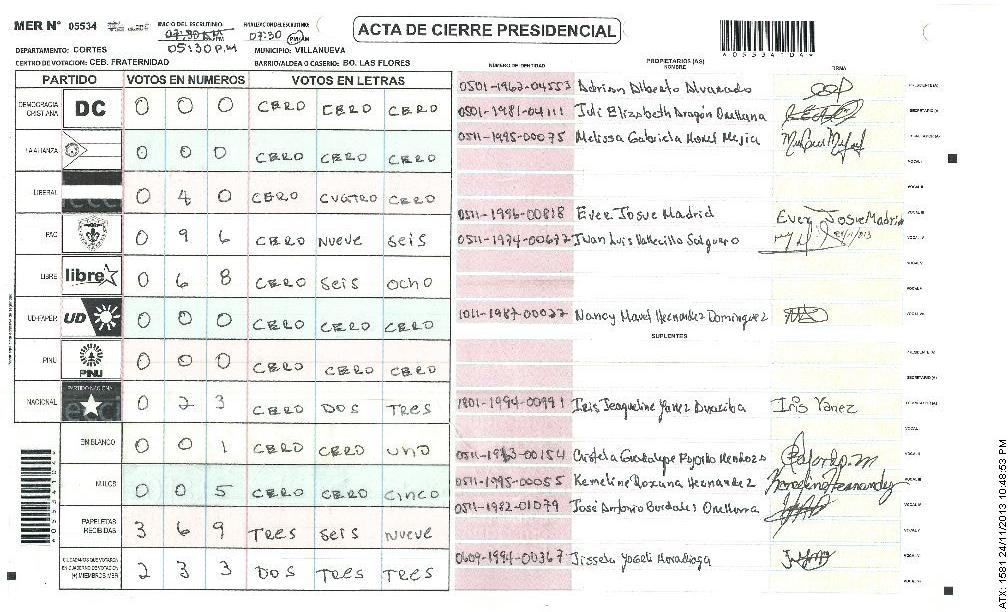 MER N° 05534
INICIO DEL ESCRUTINIO
05:30 P.M
FINALIZACION DEL ESCRUTINIO:
07:30 PM
ACTA DE CIERRE PRESIDENCIAL
DEPARTAMENTO: CORTES
MUNICIPIO: VILLANUEVA
CENTRO DE VOTACION: CEB. FRATERNIDAD
BARRIO/ALDEA O CASERIO: BO. LAS FLORES
PARTIDO VOTOS EN NUMEROS VOTOS EN LETRAS
DEMOCRACIA CRISTIANA DC 0 0 0 CERO CERO CERO
LA ALIANZA 0 0 0 CERO CERO CERO
LIBERAL 0 4 0 CERO CUATRO CERO
PAC 0 9 6 CERO NUEVE SEIS
LIBRE libre 0 6 8 CERO SEIS OCHO
UD-FAPER UD 0 0 0 CERO CERO CERO
PINU PINU 0 0 0 CERO CERO CERO
NACIONAL PARTIDO NACIONAL 0 2 3 CERO DOS TRES
EN BLANCO 0 0 1 CERO CERO UNO
NULOS 0 0 5 CERO CERO CINCO
PAPELETAS RECIBIDAS 3 6 9 TRES SEIS NUEVE
CIUDADANOS QUE VOTARON EN CUADERNO DE VOTACION (+) MIEMBROS MER 2 3 3 DOS TRES TRES
NÚMERO DE IDENTIDAD PROPIETARIOS (AS) NOMBRE FIRMA
0501-1962-04553 Adrian Alberto Alvarado
0501-1981-04111 Juli Elizabeth Aragón Orellana
0511-1995-00075 Melissa Gabriela Mejia
0511-1996-00818 Ever Josue Madrid Ever Josue Madrid
0511-1974-00677 Juan Luis Vallecillo Salguero
1011-1987-00027 Nancy Hernandez Dominguez
SUPLENTES
1801-1994-00991 Iris Jeaqueline Yanez Iris Yanez
0511-1963-00154 Guadalupe
0511-1995-00055 Kemeline Roxana Hernandez
0511-1982-01079 José Antonio Orellana
0609-1994-00367 Jissela
ATX: 1581 24/11/2013 10:48:53 PM